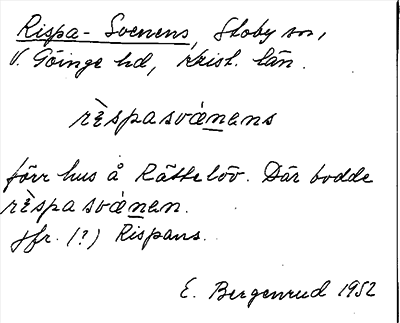 Rispa-Svenens, Stoby sn,
V. Göinge hd, Krist. län.
rèspasvánens
förr hus å Rättelöv. Där bodde
rèspasvánen.
Jfr. (?) Rispans.
E. Bergenrud 1952